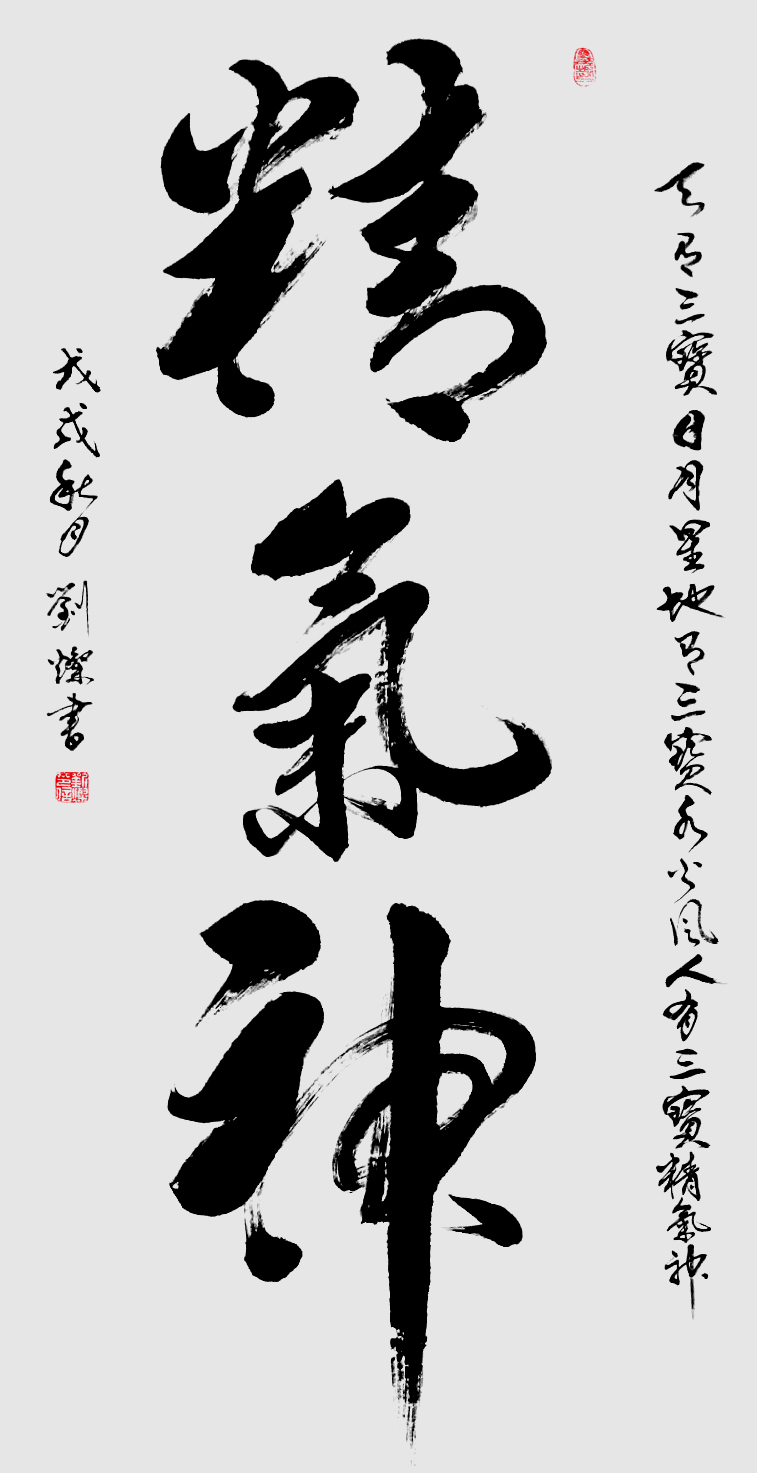 天有三寳日月星地有三寳水火風人有三寳精氣神
精氣神
戊戌秋月劉燦書